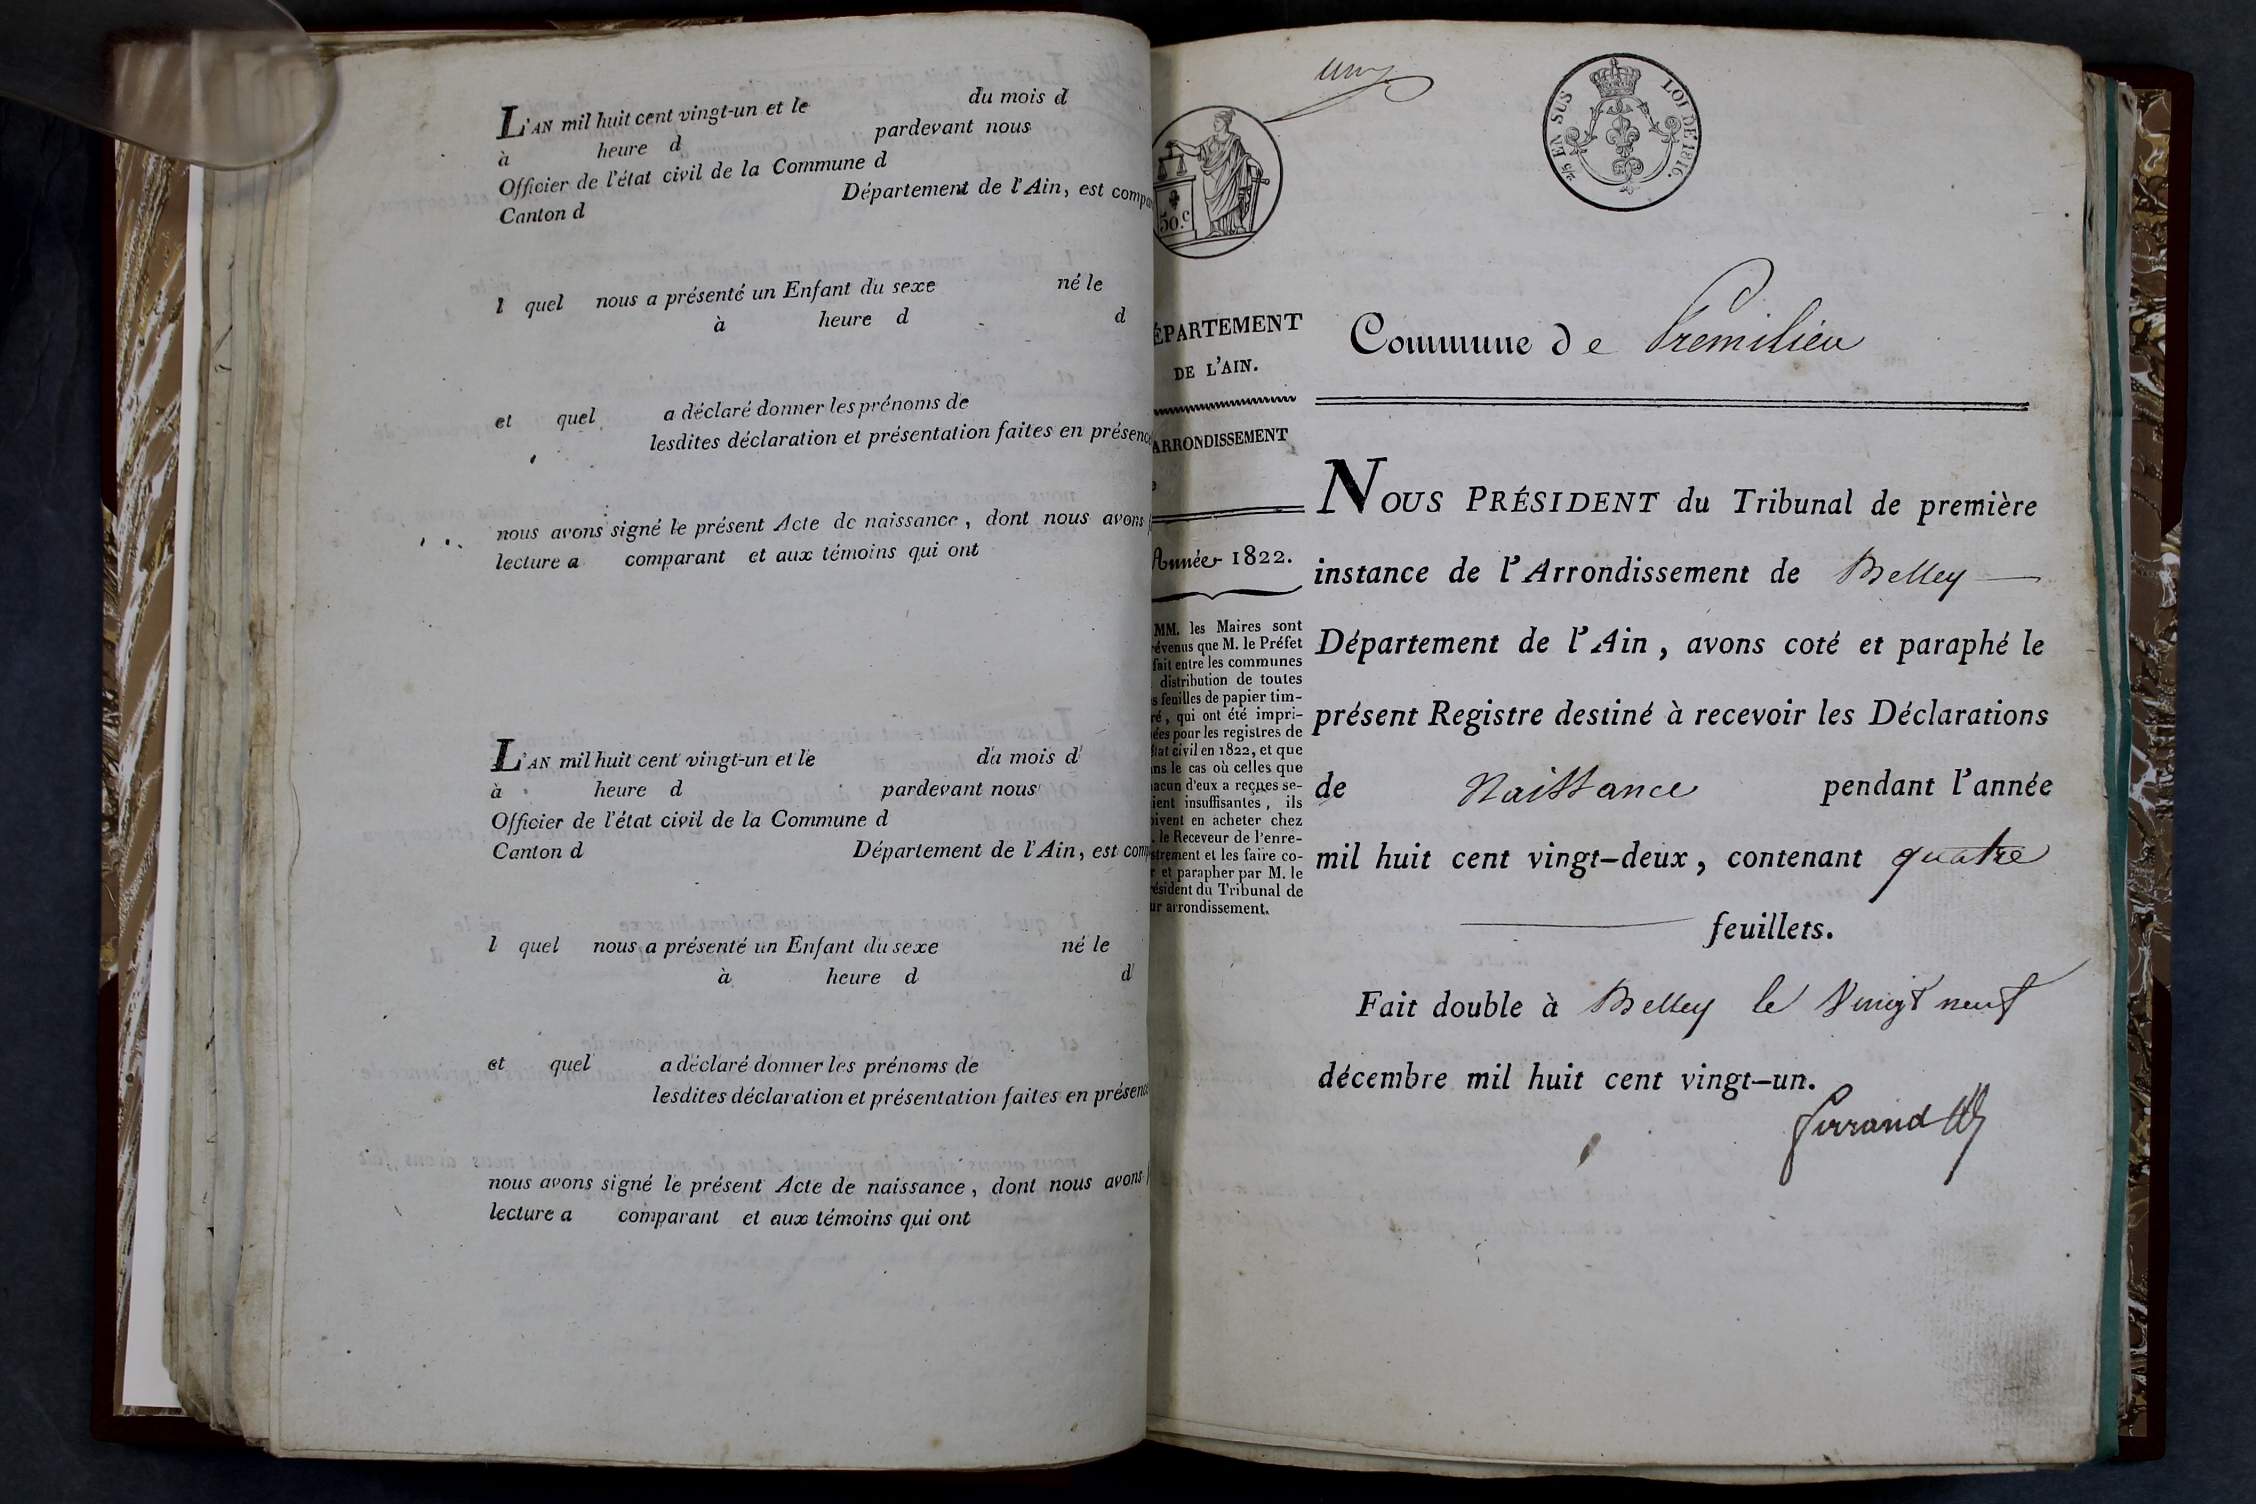 L'AN mil huit cent vingt-un et le du mois d
à heure d pardevant nous
Officier de l'état civil de la Commune d
Canton d Département de l'Ain, est compa
l quel nous a présenté un Enfant du sexe né le
à heure d d
et quel a déclaré donner les prénoms de
lesdites déclaration et présentation faites en présence
nous avons signé le présent Acte de naissance, dont nous avons
lecture a comparant et aux témoins qui ont
L'AN mil huit cent vingt-un et le du mois d
à heure d pardevant nous
Officier de l'état civil de la Commune d
Canton d Département de l'Ain, est comp
l quel nous a présenté un Enfant du sexe né le
à heure d d
et quel a déclaré donner les prénoms de
lesdites déclaration et présentation faites en présenc
nous avons signé le présent Acte de naissance, dont nous avons
lecture a comparant et aux témoins qui ont
50.c
2/5 EN SUS LOI DE 1816.
ÉPARTEMENT
DE L'AIN.
ARRONDISSEMENT
Année 1822.
MM. les Maires sont
révenus que M. le Préfet
fait entre les communes
distribution de toutes
s feuilles de papier tim-
ré, qui ont été impri-
ées pour les registres de
état civil en 1822, et que
ans le cas où celles que
hacun d'eux a reçues se-
ient insuffisantes, ils
oivent en acheter chez
. le Receveur de l'enre-
istrement et les faire co-
r et parapher par M. le
résident du Tribunal de
ur arrondissement.
Commune de Premilieu
NOUS PRÉSIDENT du Tribunal de première
instance de l'Arrondissement de Belley
Département de l'Ain, avons coté et paraphé le
présent Registre destiné à recevoir les Déclarations
de Naissance pendant l'année
mil huit cent vingt-deux, contenant quatre
feuillets.
Fait double à Belley le Vingt neuf
décembre mil huit cent vingt-un.